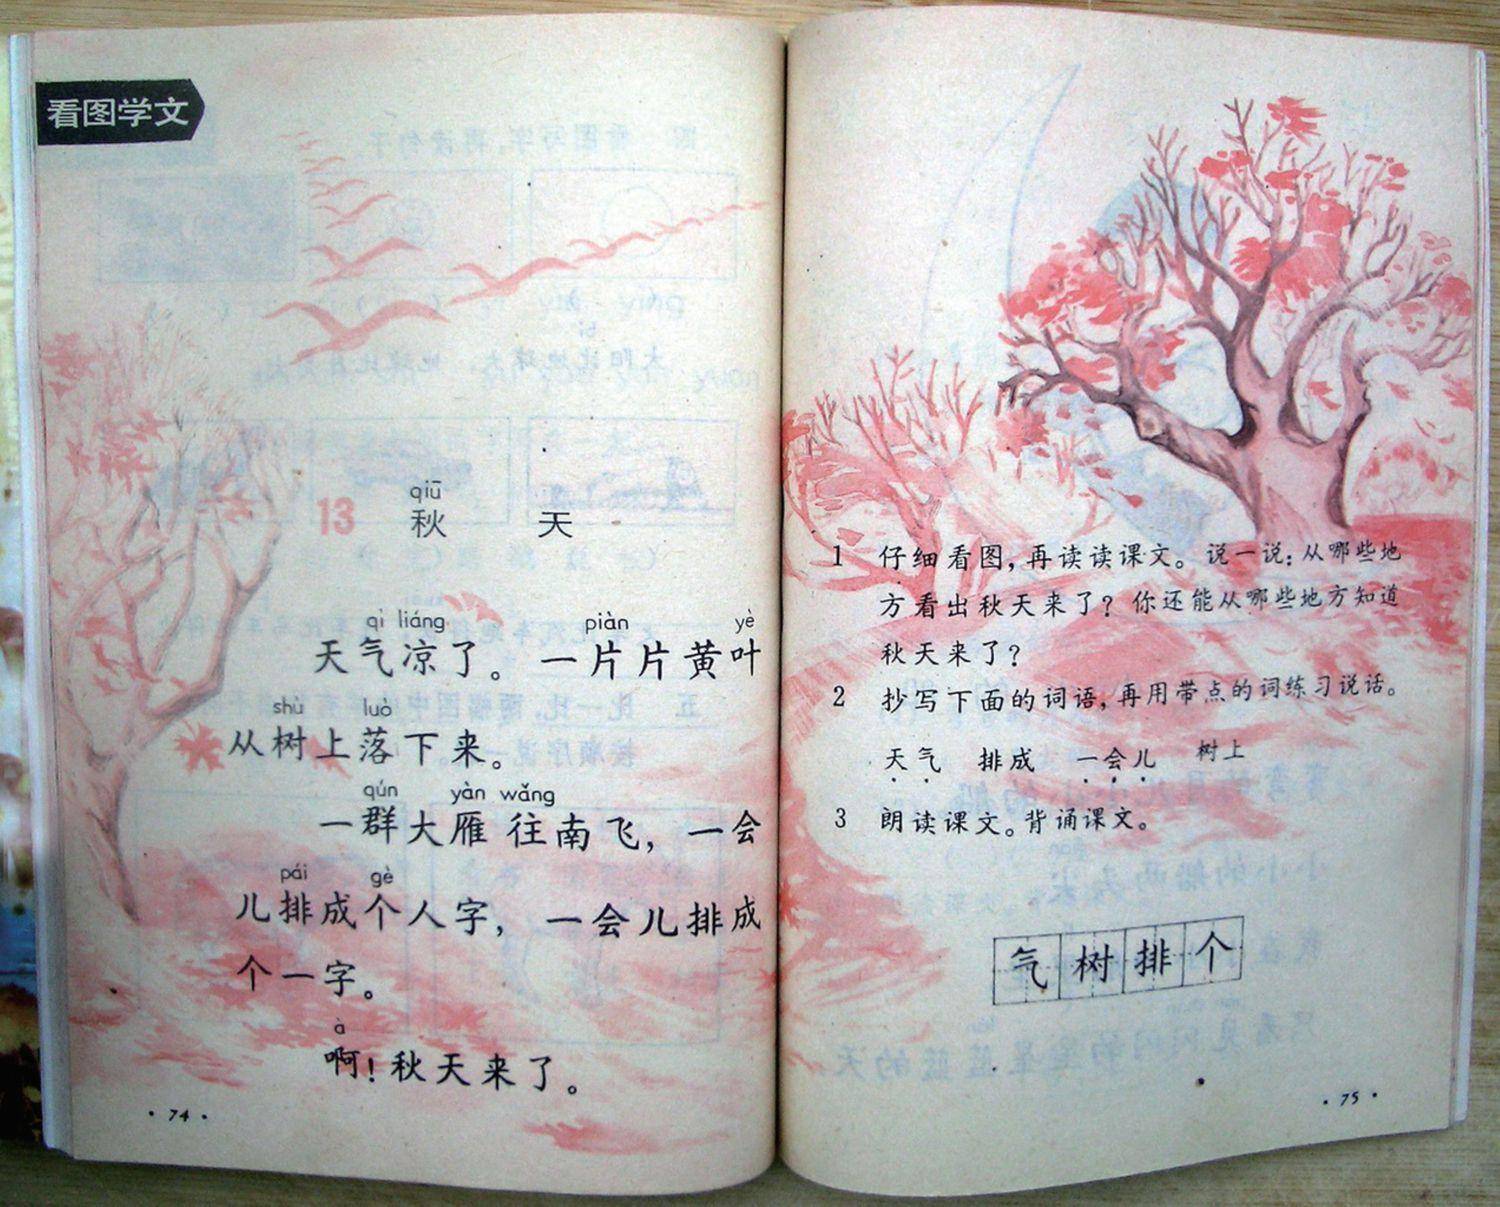 看图学文
qiū
13 秋 天
qì liáng piàn yè
天气凉了。一片片黄叶
shù luò
从树上落下来。
qún yàn wǎng
一群大雁往南飞，一会
pái gè
儿排成个人字，一会儿排成
个一字。
à
啊！秋天来了。
·74·
1 仔细看图，再读读课文。说一说：从哪些地
方看出秋天来了？你还能从哪些地方知道
秋天来了？
2 抄写下面的词语，再用带点的词练习说话。
天气 排成 一会儿 树上
3 朗读课文。背诵课文。
气树排个
·75·